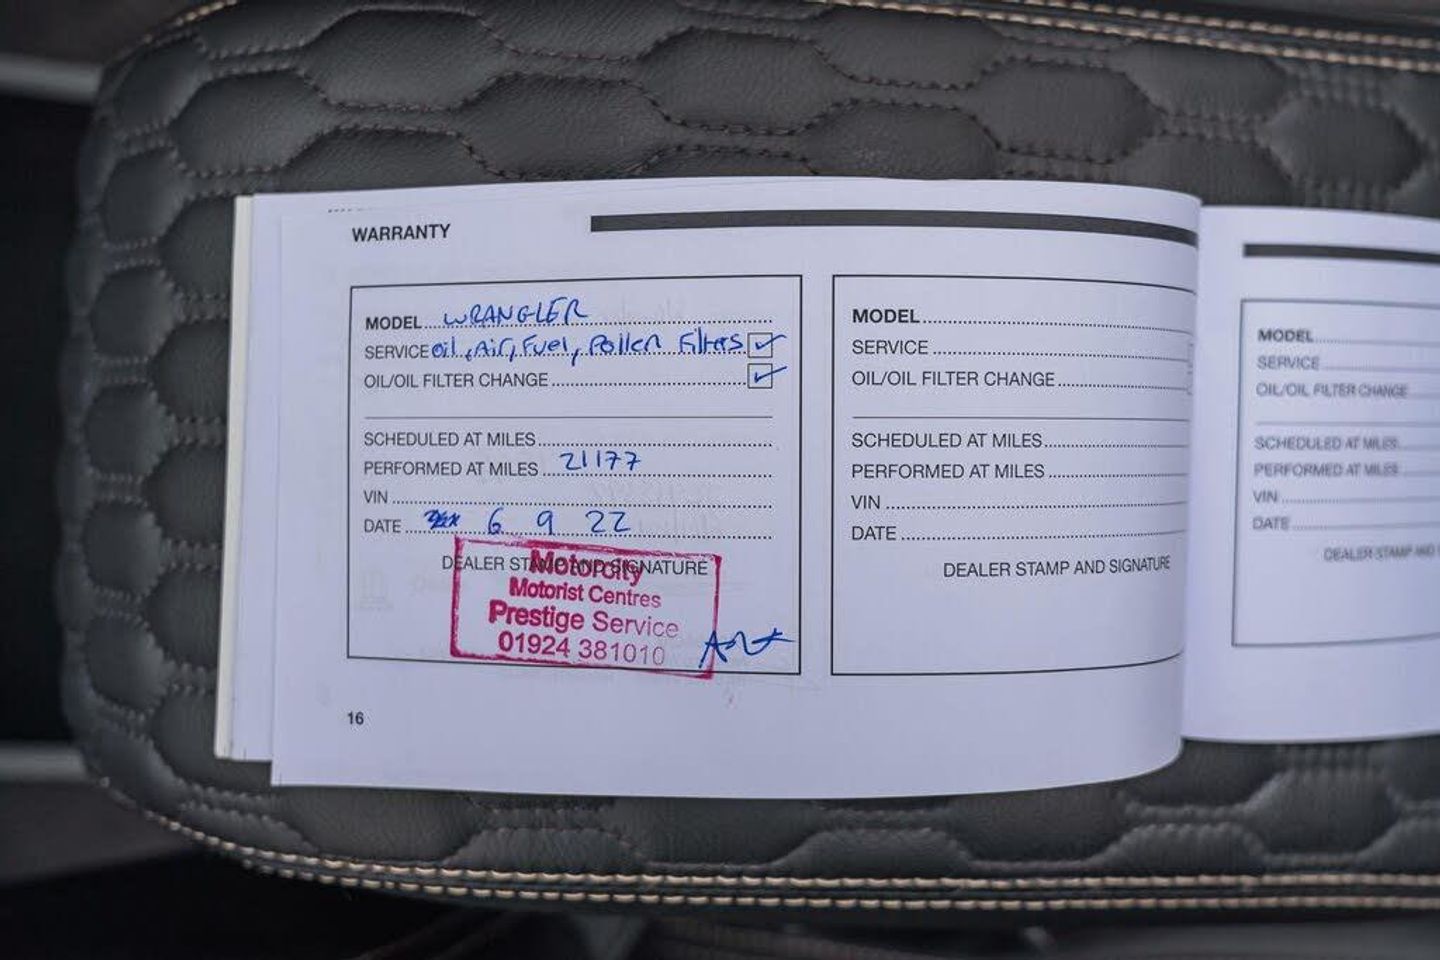 WARRANTY
MODEL WRANGLER
SERVICE Oil, Air, Fuel, Pollen Filters ✓
OIL/OIL FILTER CHANGE ✓
SCHEDULED AT MILES
PERFORMED AT MILES 21177
VIN
DATE 6 9 22
DEALER STAMP AND SIGNATURE
Motorcity
Motorist Centres
Prestige Service
01924 381010
16
MODEL
SERVICE
OIL/OIL FILTER CHANGE
SCHEDULED AT MILES
PERFORMED AT MILES
VIN
DATE
DEALER STAMP AND SIGNATURE
MODEL
SERVICE
OIL/OIL FILTER CHANGE
SCHEDULED AT MILES
PERFORMED AT MILES
VIN
DATE
DEALER STAMP AND